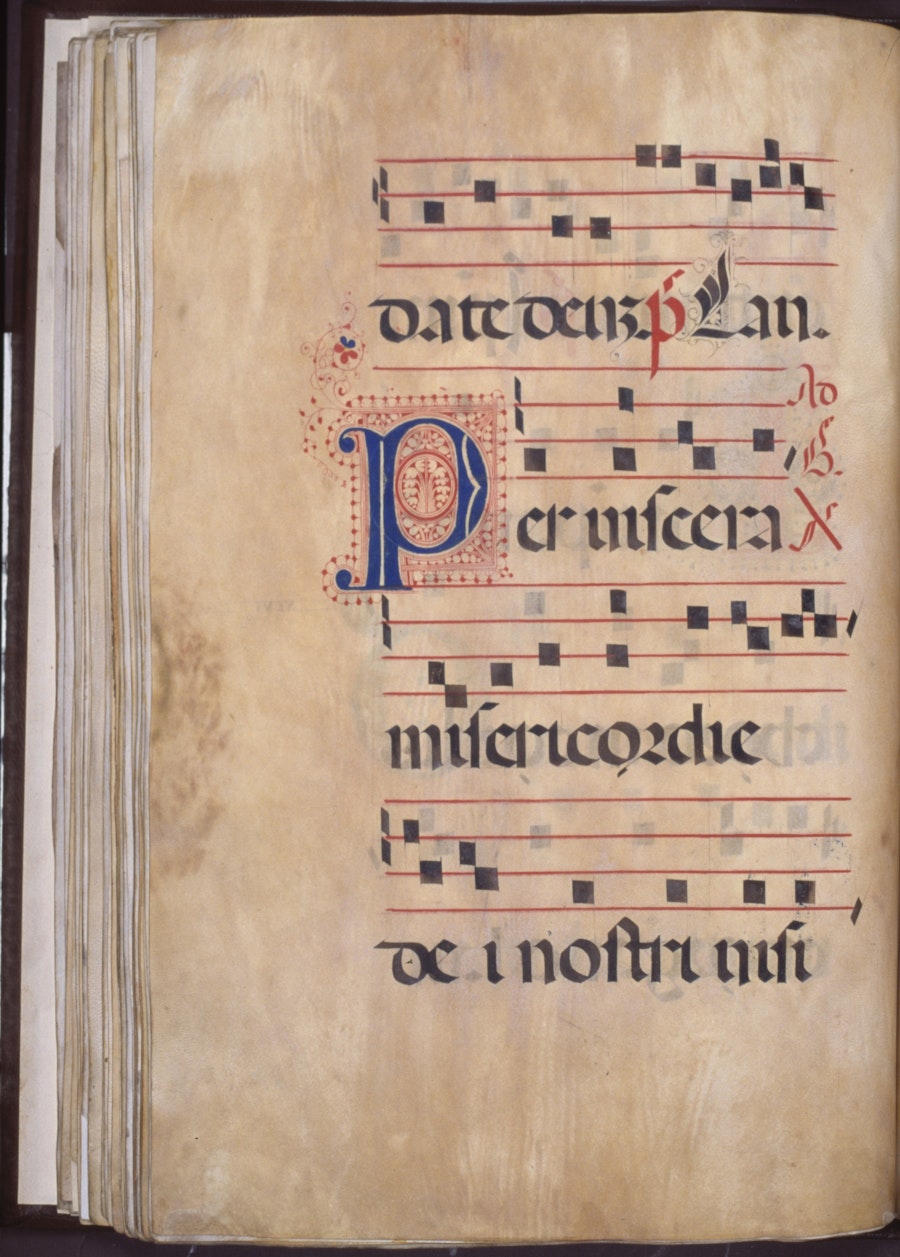 date deuʒ. p̃ Lau.
Ad
B.
Per viſcera X
miſericordie
de i noſtri viſi